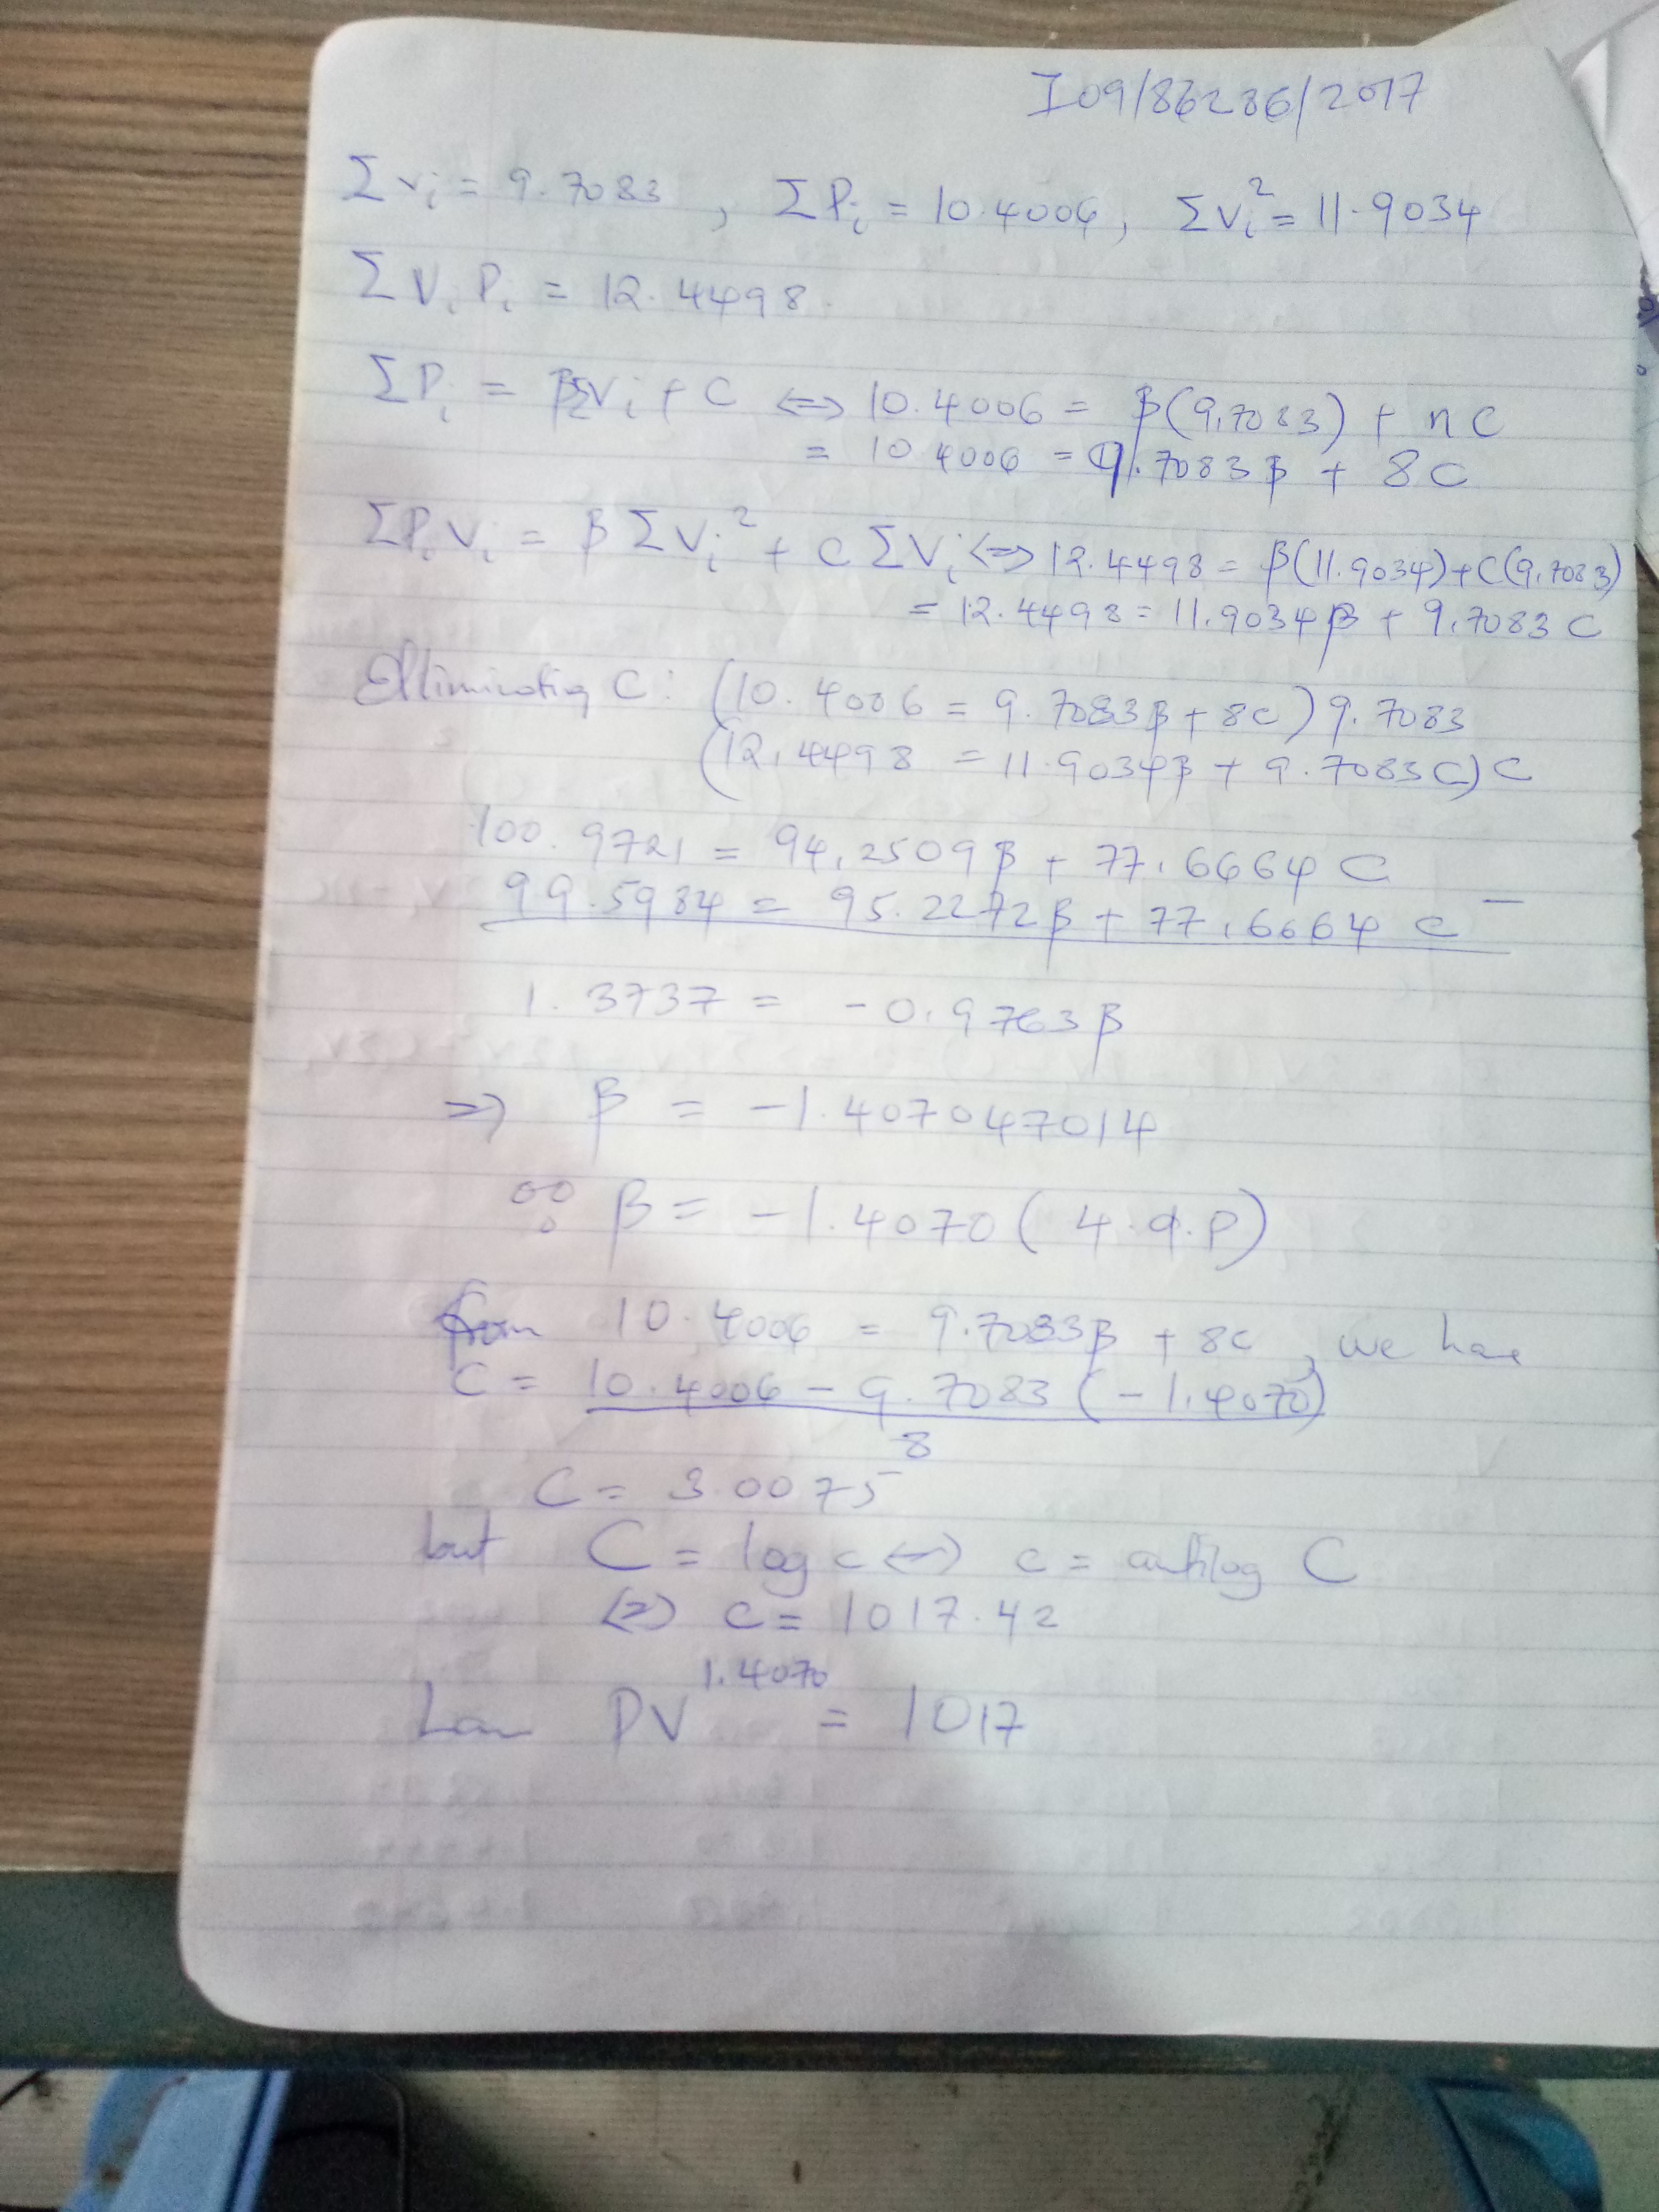 I09/86286/2017
Σvi = 9.7083 , ΣPi = 10.4006, Σvi² = 11.9034
ΣViPi = 12.4498.
ΣPi = βΣVi + C ⟺ 10.4006 = β(9.7083) + nC
= 10.4006 = 9.7083β + 8C
ΣPiVi = βΣVi² + CΣVi ⟺ 12.4498 = β(11.9034)+C(9.7083)
= 12.4498 = 11.9034β + 9.7083C
Elliminating C: (10.4006 = 9.7083β + 8C) 9.7083
(12.4498 = 11.9034β + 9.7083C) C
100.9721 = 94.2509β + 77.6664C
99.5984 = 95.2272β + 77.6664C –
1.3737 = -0.9763β
⇒ β = -1.407047014
∴ β = -1.4070 (4.d.p)
from 10.4006 = 9.7083β + 8C, we have
C = 10.4006 - 9.7083(-1.4070)
8
C = 3.0075
but C = log c ⟺ c = antilog C
⟺ c = 1017.42
Law PV^1.4070 = 1017